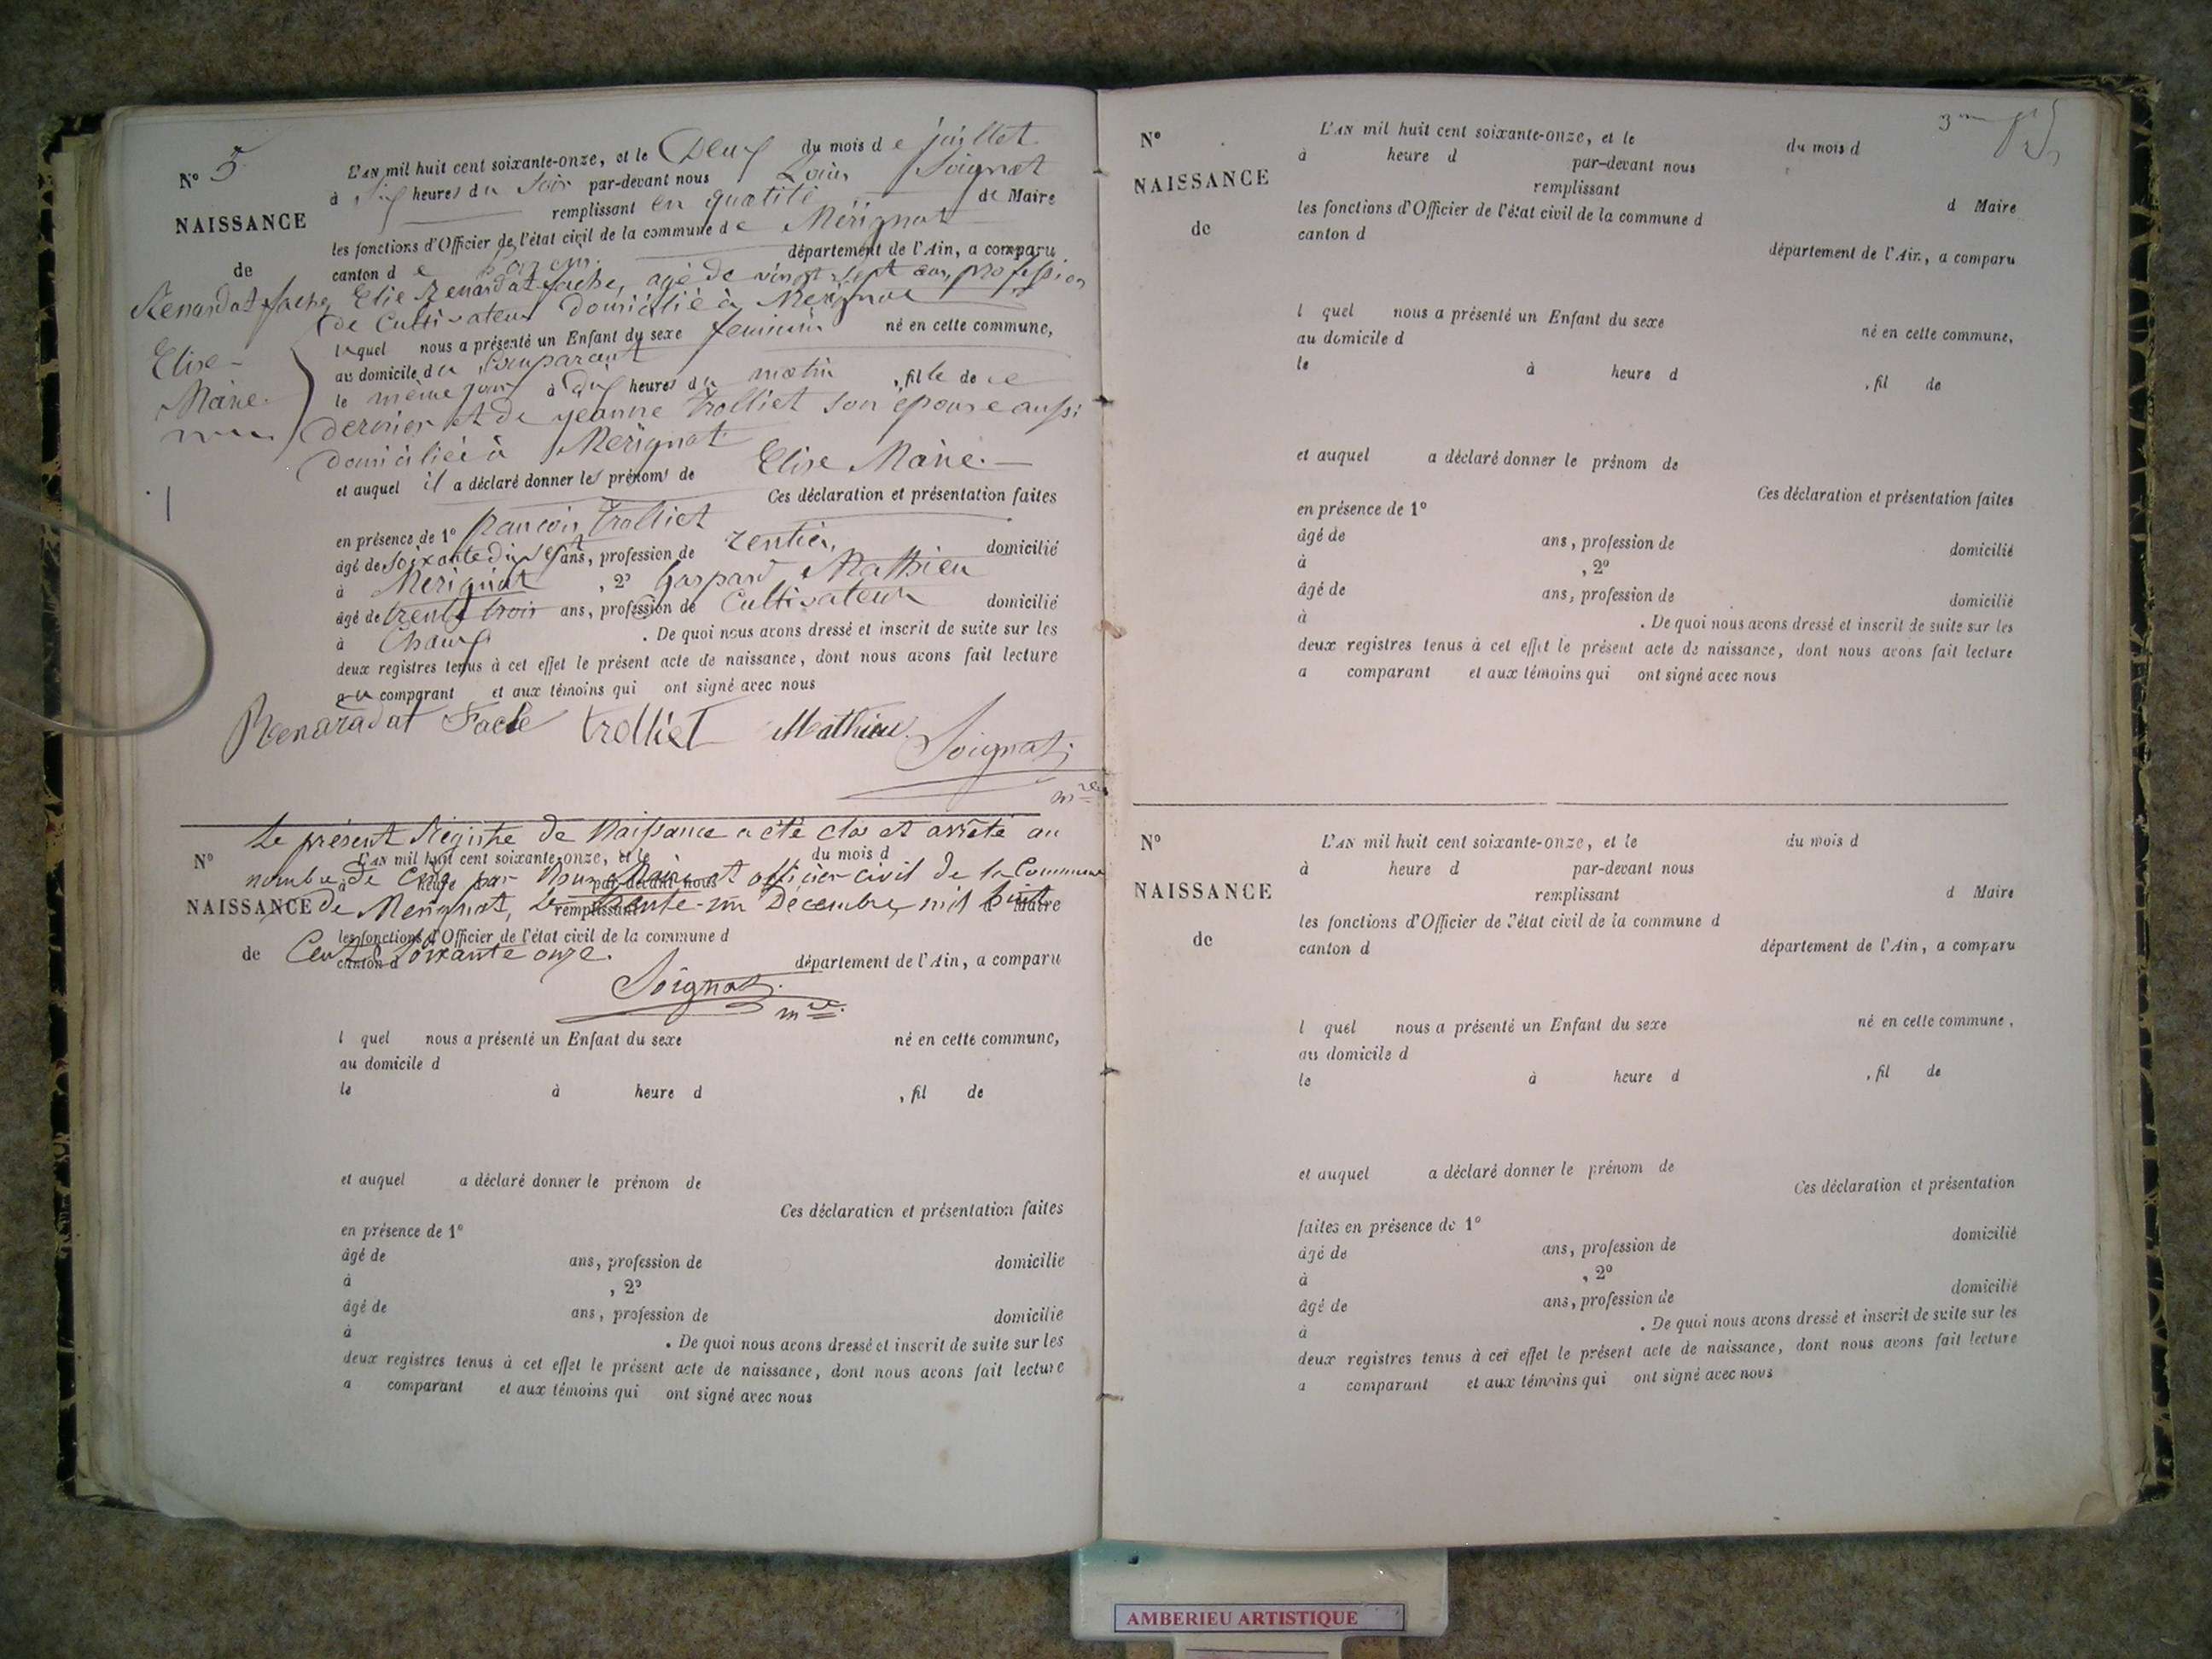 N° 5
NAISSANCE
de
Renardat fache
Elise
Marie
L'AN mil huit cent soixante-onze, et le Deux du mois de juillet
à Six heures du Soir par-devant nous Louis Soignat
remplissant en qualité de Maire
les fonctions d'Officier de l'état civil de la commune de Mérignat
canton de Poncin département de l'Ain, a comparu
Elie Renardat fache, agé de vingt-sept ans, profession
de Cultivateur domicilié à Mérignat
lequel nous a présenté un Enfant du sexe feminin né en cette commune,
au domicile du Comparant
le même jour à Dix heures du matin, fille de ce
dernier et de jeanne Trolliet son épouse aussi
domiciliée à Mérignat
et auquel il a déclaré donner les prénoms de Elise Marie
Ces déclaration et présentation faites
en présence de 1° francois Trolliet
âgé de soixante dix sept ans, profession de rentier domicilié
à Mérignat, 2° Gaspard Mathieu
âgé de trente trois ans, profession de Cultivateur domicilié
à Chaux. De quoi nous avons dressé et inscrit de suite sur les
deux registres tenus à cet effet le présent acte de naissance, dont nous avons fait lecture
au comparant et aux témoins qui ont signé avec nous
Renardat Fache trolliet Mathieu Soignat
mre
Le présent Régistre de Naissance a été clos et arrêté au
N° L'AN mil huit cent soixante-onze, et le du mois d
nombre de Cinq par Nous Maire et officier civil de la Commune
à heure d par-devant nous
NAISSANCE de Mérignat, Le trente-un Décembre mil huit
remplissant d Maire
les fonctions d'Officier de l'état civil de la commune d
de Cent Soixante onze.
canton d département de l'Ain, a comparu
Soignat
mre
l quel nous a présenté un Enfant du sexe né en cette commune,
au domicile d
le à heure d , fil de
et auquel a déclaré donner le prénom de
Ces déclaration et présentation faites
en présence de 1°
âgé de ans, profession de domicilié
à , 2°
âgé de ans, profession de domicilié
à . De quoi nous avons dressé et inscrit de suite sur les
deux registres tenus à cet effet le présent acte de naissance, dont nous avons fait lecture
a comparant et aux témoins qui ont signé avec nous
N°
NAISSANCE
de
L'AN mil huit cent soixante-onze, et le du mois d
à heure d par-devant nous
remplissant d Maire
les fonctions d'Officier de l'état civil de la commune d
canton d département de l'Ain, a comparu
l quel nous a présenté un Enfant du sexe né en cette commune,
au domicile d
le à heure d , fil de
et auquel a déclaré donner le prénom de
Ces déclaration et présentation faites
en présence de 1°
âgé de ans, profession de domicilié
à , 2°
âgé de ans, profession de domicilié
à . De quoi nous avons dressé et inscrit de suite sur les
deux registres tenus à cet effet le présent acte de naissance, dont nous avons fait lecture
a comparant et aux témoins qui ont signé avec nous
N°
NAISSANCE
de
L'AN mil huit cent soixante-onze, et le du mois d
à heure d par-devant nous
remplissant d Maire
les fonctions d'Officier de l'état civil de la commune d
canton d département de l'Ain, a comparu
l quel nous a présenté un Enfant du sexe né en cette commune,
au domicile d
le à heure d , fil de
et auquel a déclaré donner le prénom de
Ces déclaration et présentation
faites en présence de 1°
âgé de ans, profession de domicilié
à , 2°
âgé de ans, profession de domicilié
à . De quoi nous avons dressé et inscrit de suite sur les
deux registres tenus à cet effet le présent acte de naissance, dont nous avons fait lecture
a comparant et aux témoins qui ont signé avec nous
AMBERIEU ARTISTIQUE